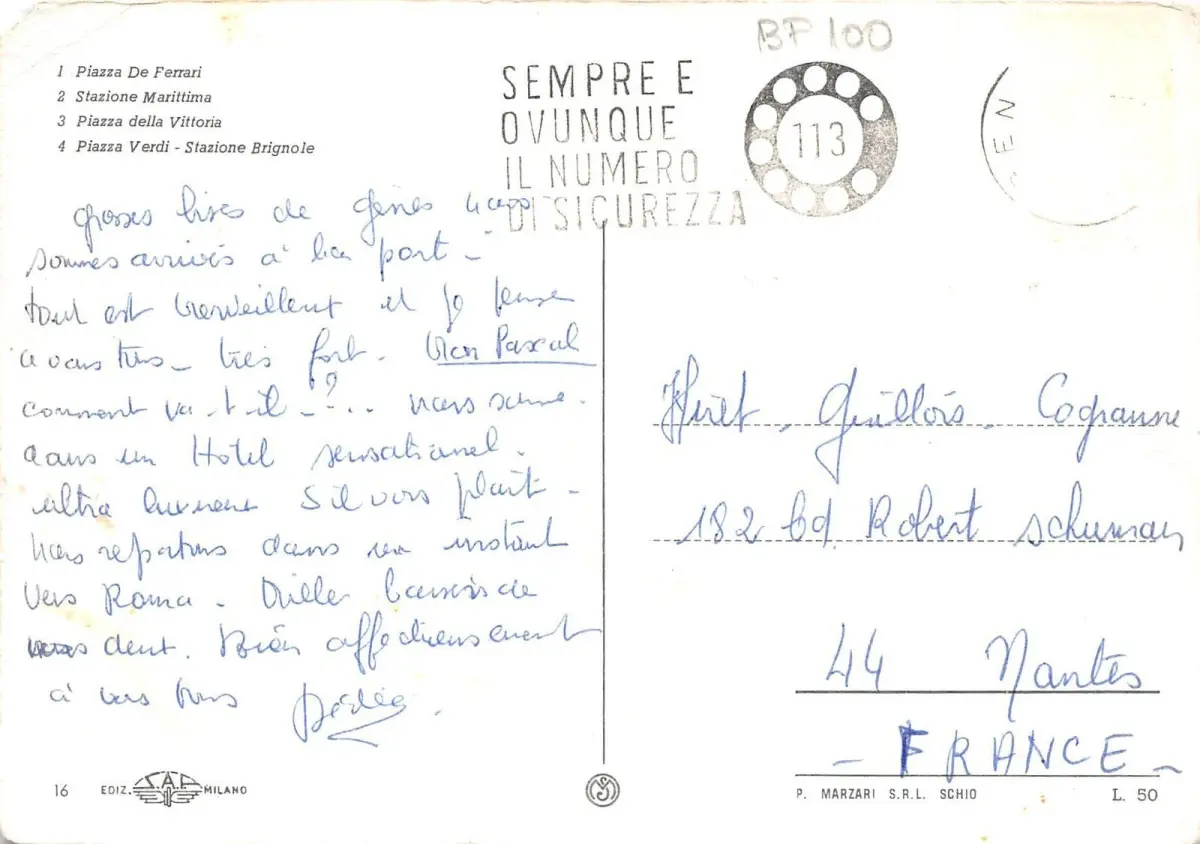 BF 100
1 Piazza De Ferrari
2 Stazione Marittima
3 Piazza della Vittoria
4 Piazza Verdi - Stazione Brignole
SEMPRE E
OVUNQUE
IL NUMERO
DI SICUREZZA
113
GEN
grosses bises de gênes nous
sommes arrivés à bon port -
tout est merveilleux et je pense
a vous tous - très fort. Mon Pascal
comment va-t-il - ? ... nous sommes
dans un Hotel sensationel.
ultra S'il vous plaît -
Nous repartons dans un instant
vers Roma. Mille baisers de
nous deux. Bien affectueusement
à vous tous
Guillois, Cogranne
182 bd. Robert Schuman
44 Nantes
- FRANCE -
16 EDIZ. S.A.F. MILANO
P. MARZARI S.R.L. SCHIO L. 50